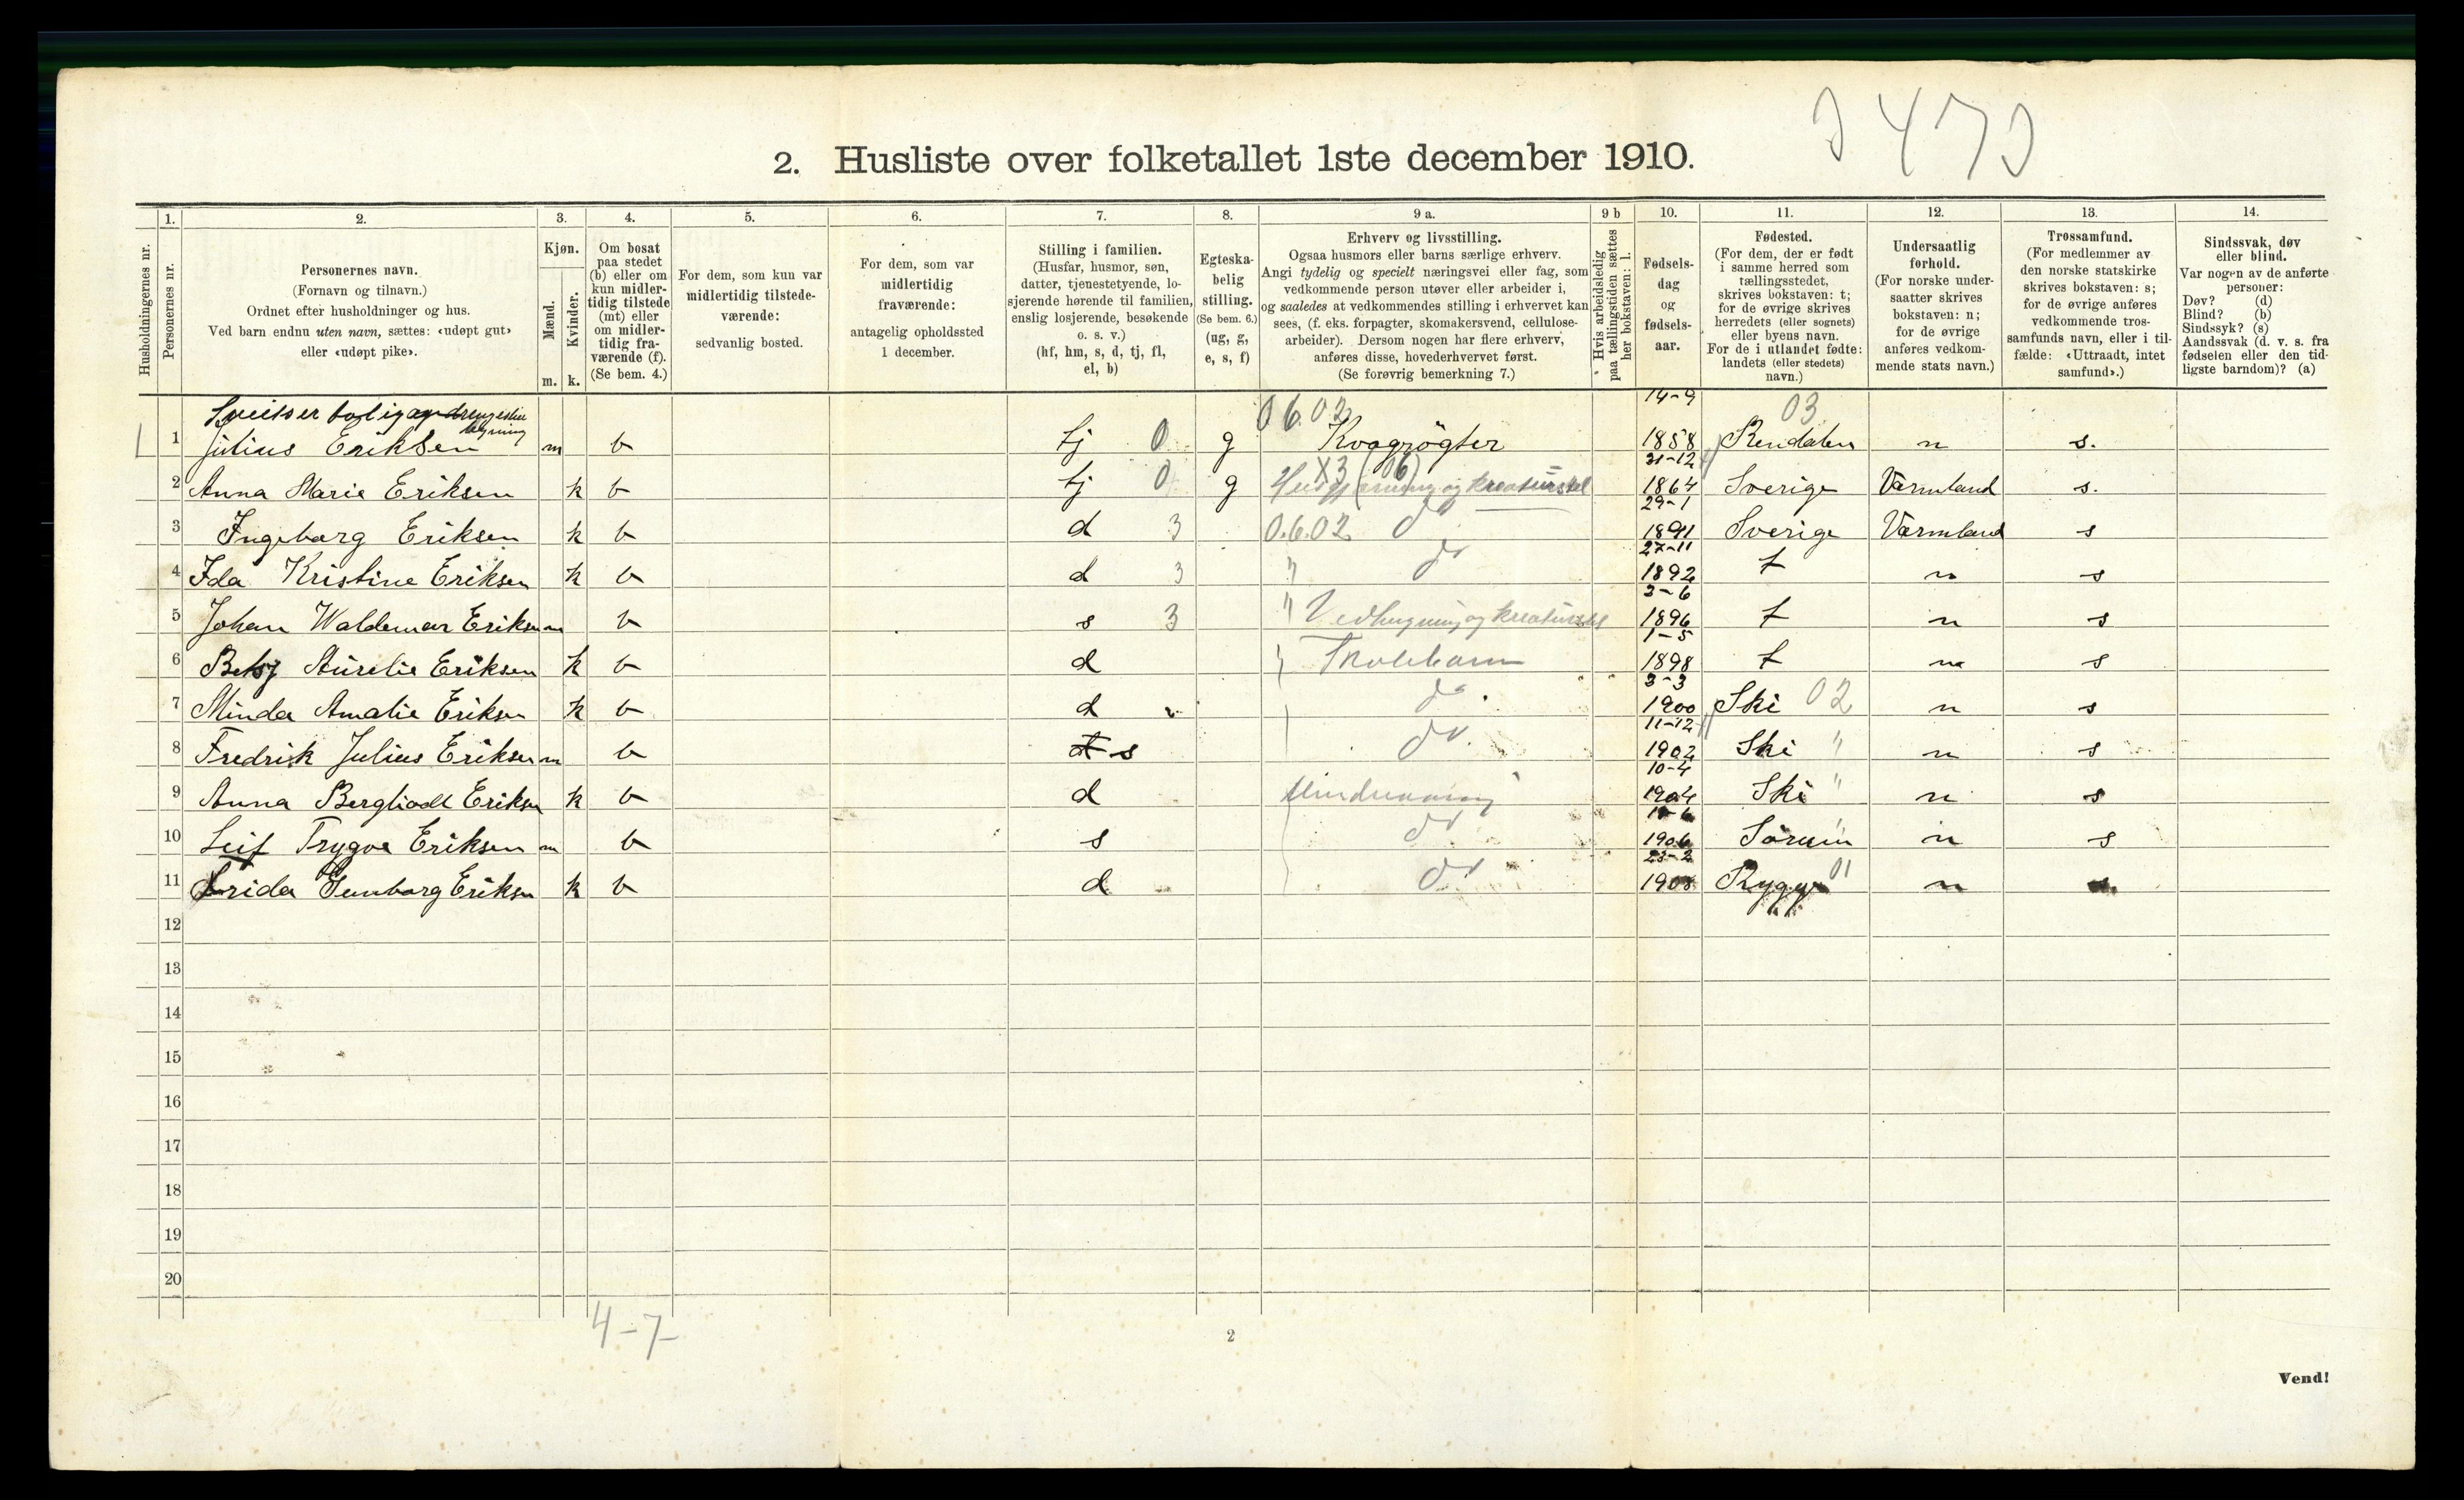 2473
2. Husliste over folketallet 1ste december 1910.
Husholdningernes nr.
1. Personernes nr.
2. Personernes navn.
(Fornavn og tilnavn.)
Ordnet efter husholdninger og hus.
Ved barn endnu uten navn, sættes: «udøpt gut»
eller «udøpt pike».
3. Kjøn.
Mænd. Kvinder.
m. k.
4. Om bosat
paa stedet
(b) eller om
kun midler-
tidig tilstede
(mt) eller
om midler-
tidig fra-
værende (f).
(Se bem. 4.)
5. For dem, som kun var
midlertidig tilstede-
værende:
sedvanlig bosted.
6. For dem, som var
midlertidig
fraværende:
antagelig opholdssted
1 december.
7. Stilling i familien.
(Husfar, husmor, søn,
datter, tjenestetyende, lo-
sjerende hørende til familien,
enslig losjerende, besøkende
o. s. v.)
(hf, hm, s, d, tj, fl,
el, b)
8. Egteska-
belig
stilling.
(Se bem. 6.)
(ug, g,
e, s, f)
9 a. Erhverv og livsstilling.
Ogsaa husmors eller barns særlige erhverv.
Angi tydelig og specielt næringsvei eller fag, som
vedkommende person utøver eller arbeider i,
og saaledes at vedkommendes stilling i erhvervet kan
sees, (f. eks. forpagter, skomakersvend, cellulose-
arbeider). Dersom nogen har flere erhverv,
anføres disse, hovederhvervet først.
(Se forøvrig bemerkning 7.)
9 b Hvis arbeidsledig
paa tællingstiden sættes
her bokstaven: l.
10. Fødsels-
dag
og
fødsels-
aar.
11. Fødested.
(For dem, der er født
i samme herred som
tællingsstedet,
skrives bokstaven: t;
for de øvrige skrives
herredets (eller sognets)
eller byens navn.
For de i utlandet fødte:
landets (eller stedets)
navn.)
12. Undersaatlig
forhold.
(For norske under-
saatter skrives
bokstaven: n;
for de øvrige
anføres vedkom-
mende stats navn.)
13. Trossamfund.
(For medlemmer av
den norske statskirke
skrives bokstaven: s;
for de øvrige anføres
vedkommende tros-
samfunds navn, eller i til-
fælde: «Uttraadt, intet
samfund».)
14. Sindssvak, døv
eller blind.
Var nogen av de anførte
personer:
Døv? (d)
Blind? (b)
Sindssyk? (s)
Aandssvak (d. v. s. fra
fødselen eller den tid-
ligste barndom)? (a)
Sveitser bolig
06.02 14-9 03
1 Julius Eriksen m b tj 0 g Kvægrøgter 1858 Rendalen n s.
X3 (06) 31-12
2 Anna Marie Eriksen k b tj 0 g Husgjerning og kreaturstel 1864 Sverige Värmland s.
29-1
3 Ingeborg Eriksen k b d 3 0.6.02 do 1891 Sverige Värmland s
27-11
4 Ida Kristine Eriksen k b d 3 " do 1892 t n s
3-6
5 Johan Waldemar Eriksen m b s 3 " Vedhugning og kreaturstel 1896 t n s
1-5
6 Betsj Aurelie Eriksen k b d " Skolebarn 1898 t n s
3-3
7 Minda Amalie Eriksen k b d do 1900 Ski 02 n s
11-12
8 Fredrik Julius Eriksen m b s do 1902 Ski " n s
10-4
9 Anna Bergliodt Eriksen k b d Mindreaarig 1904 Ski " n s
10 Leif Trygve Eriksen m b s do 1906 Sørum " n s
23-2
11 Frida Gunborg Eriksen k b d do 1908 Rygge 01 n s
12
13
14
15
16
17
18
19
20
4-7
2
Vend!